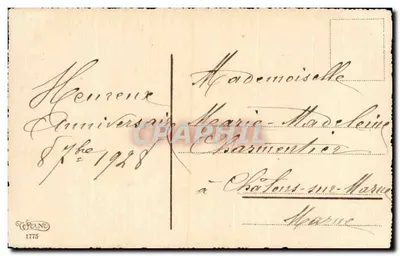 Heureux
Anniversaire
8 7bre 1928
Mademoiselle
Marie-Madeleine
Charmentier
à Châlons-sur-Marne
Marne
CHAPITRE
1775